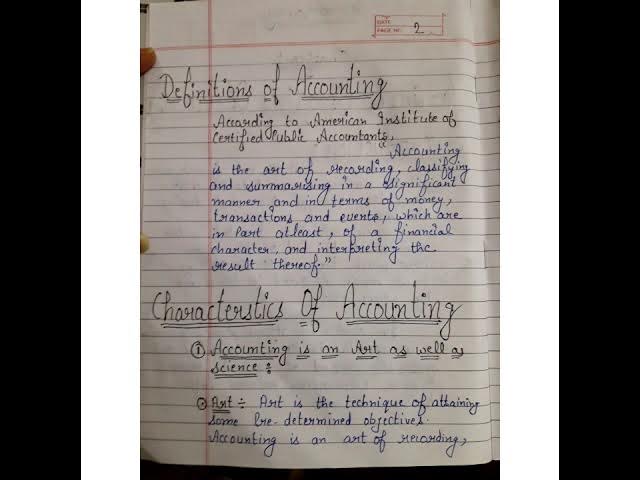 DATE
PAGE NO. 2
Definitions of Accounting
According to American Institute of
Certified Public Accountants,
"Accounting
is the art of recording, classifying
and summarising in a significant
manner and in terms of money,
transactions and events, which are
in Part atleast, of a financial
character, and interpreting the
result thereof."
Characterstics Of Accounting
① Accounting is an Art as well as
science :
Art ÷ Art is the technique of attaining
some Pre-determined objectives.
Accounting is an art of recording,